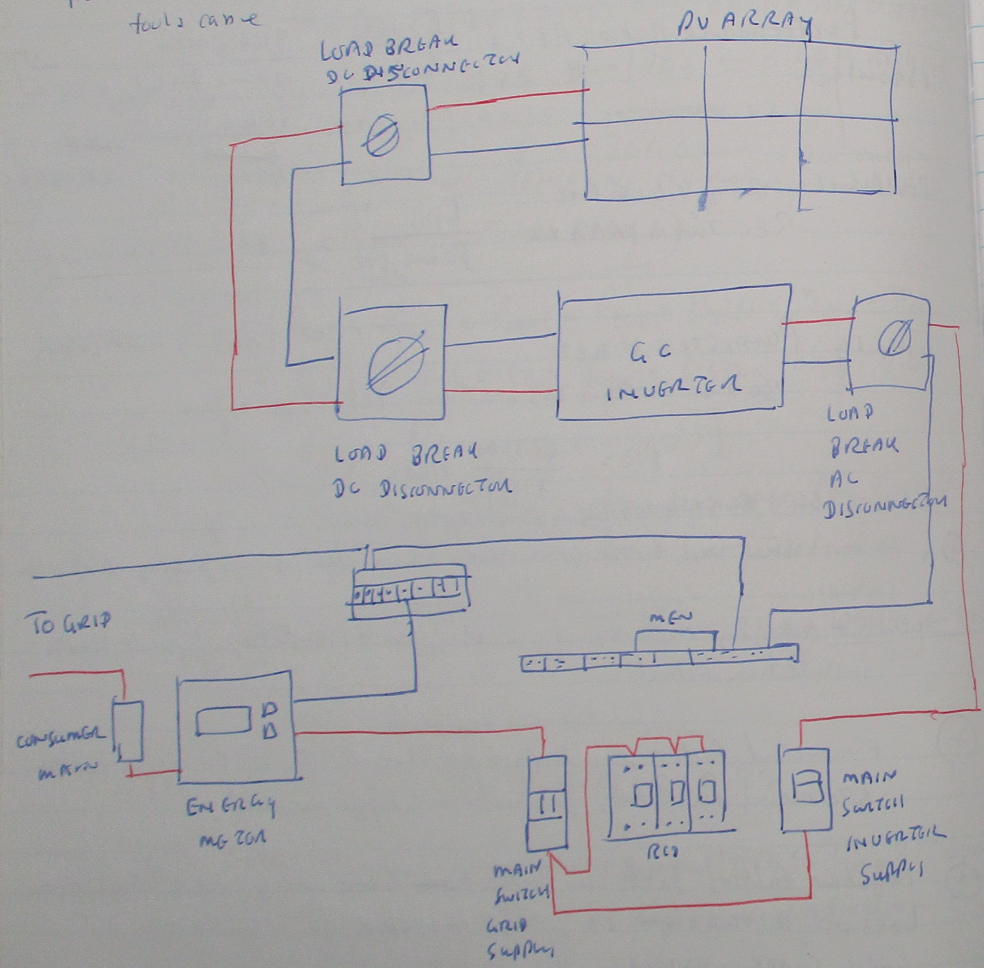 tools came
PV ARRAY
LOAD BREAK
DC DISCONNECTOR
GC
INVERTER
LOAD BREAK
DC DISCONNECTOR
LOAD
BREAK
AC
DISCONNECTOR
TO GRID
MEN
CONSUMER
MAIN
ENERGY
METOR
MAIN
SWITCH
GRID
SUPPLY
RCD
MAIN
SWITCH
INVERTER
SUPPLY